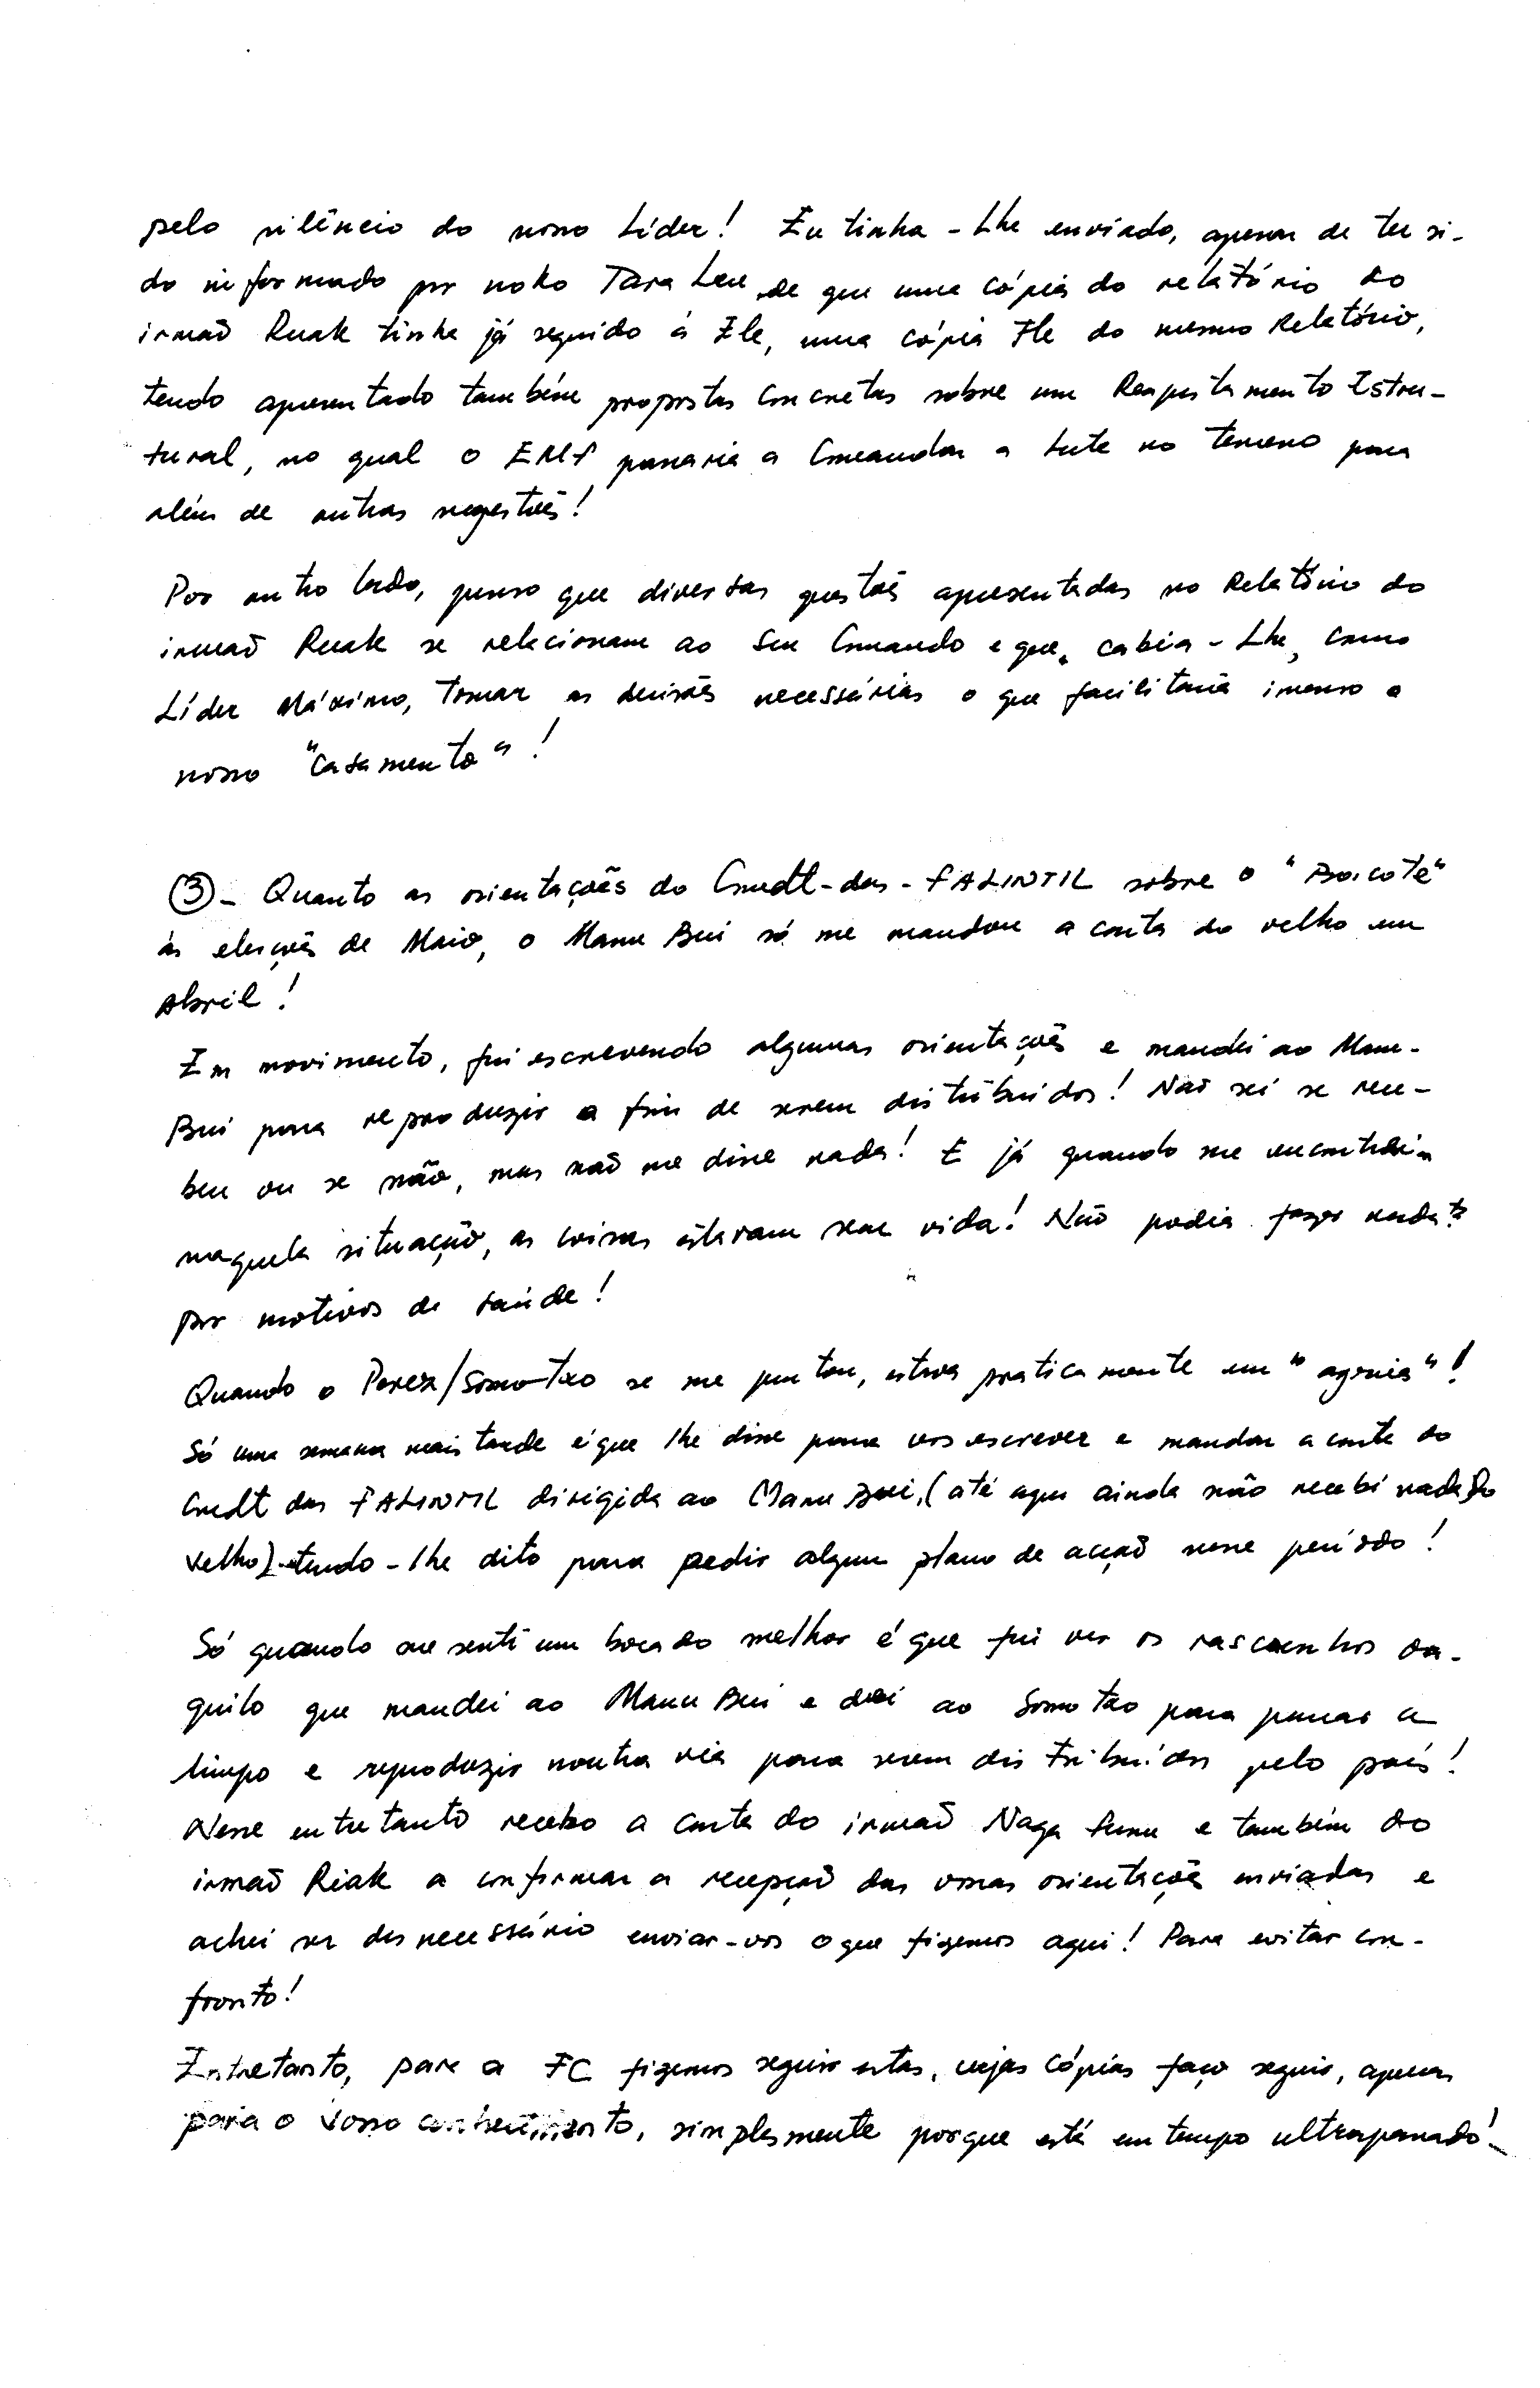 pelo silêncio do nosso Líder! Eu tinha-Lhe enviado, apesar de ter si-
do informado por noko Tara Leu de que uma cópia do relatório do
irmaõ Ruak tinha já seguido á Ele, uma cópia Ele do mesmo Relatório,
tendo apresentado também propostas concretas sobre um Reajustamento Estru-
tural, no qual o EMF passaria a Comandar a Luta no terreno para
além de outras sugestoẽs!
Por outro lado, penso que diversas questoẽs apresentadas no Relatório do
irmaõ Ruak se relacionam ao Seu Comando e que, cabia-Lhe, como
Líder Máximo, tomar as decisoẽs necessárias o que facilitaria imenso o
nosso "casamento"!
③- Quanto as orientaçoẽs do Cmdt-das-FALINTIL sobre o "Boicote"
ás eleiçoẽs de Maio, o Manu Bui só me mandou a carta do velho em
Abril!
Em movimento, fui escrevendo algumas orientaçoẽs e mandei ao Manu-
Bui para reproduzir a fim de serem distribuidos! Naõ sei se rece-
beu ou se não, mas naõ me disse nada! E já quando me encontrei
naquela situação, as coisas estavam sem vida! Não podia fazer nada
por motivos de saúde!
Quando o Perez/Somotxo se me juntou, estava praticamente em "agonia"!
Só uma semana mais tarde é que lhe disse para vos escrever e mandar a carta do
Cmdt das FALINTIL dirigida ao Manu Bui, (até aqui ainda não recebi nada do
velho) tendo-lhe dito para pedir algum plano de acçaõ nesse período!
Só quando me senti um bocado melhor é que fui ver os rascunhos da-
quilo que mandei ao Manu Bui e dei ao Somotxo para passar a
limpo e reproduzir noutra via para serem distribuidos pelo país!
Nesse entretanto recebo a carta do irmaõ Naga Sunu e também do
irmaõ Riak a confirmar a recepçaõ das vossas orientaçoẽs enviadas e
achei ser desnecessário enviar-vos o que fizemos aqui! Para evitar con-
fronto!
Entretanto, para a FC fizemos seguir estas, cujas cópias faço seguir, apenas
para o vosso conhecimento, simplesmente porque está em tempo ultrapassado!